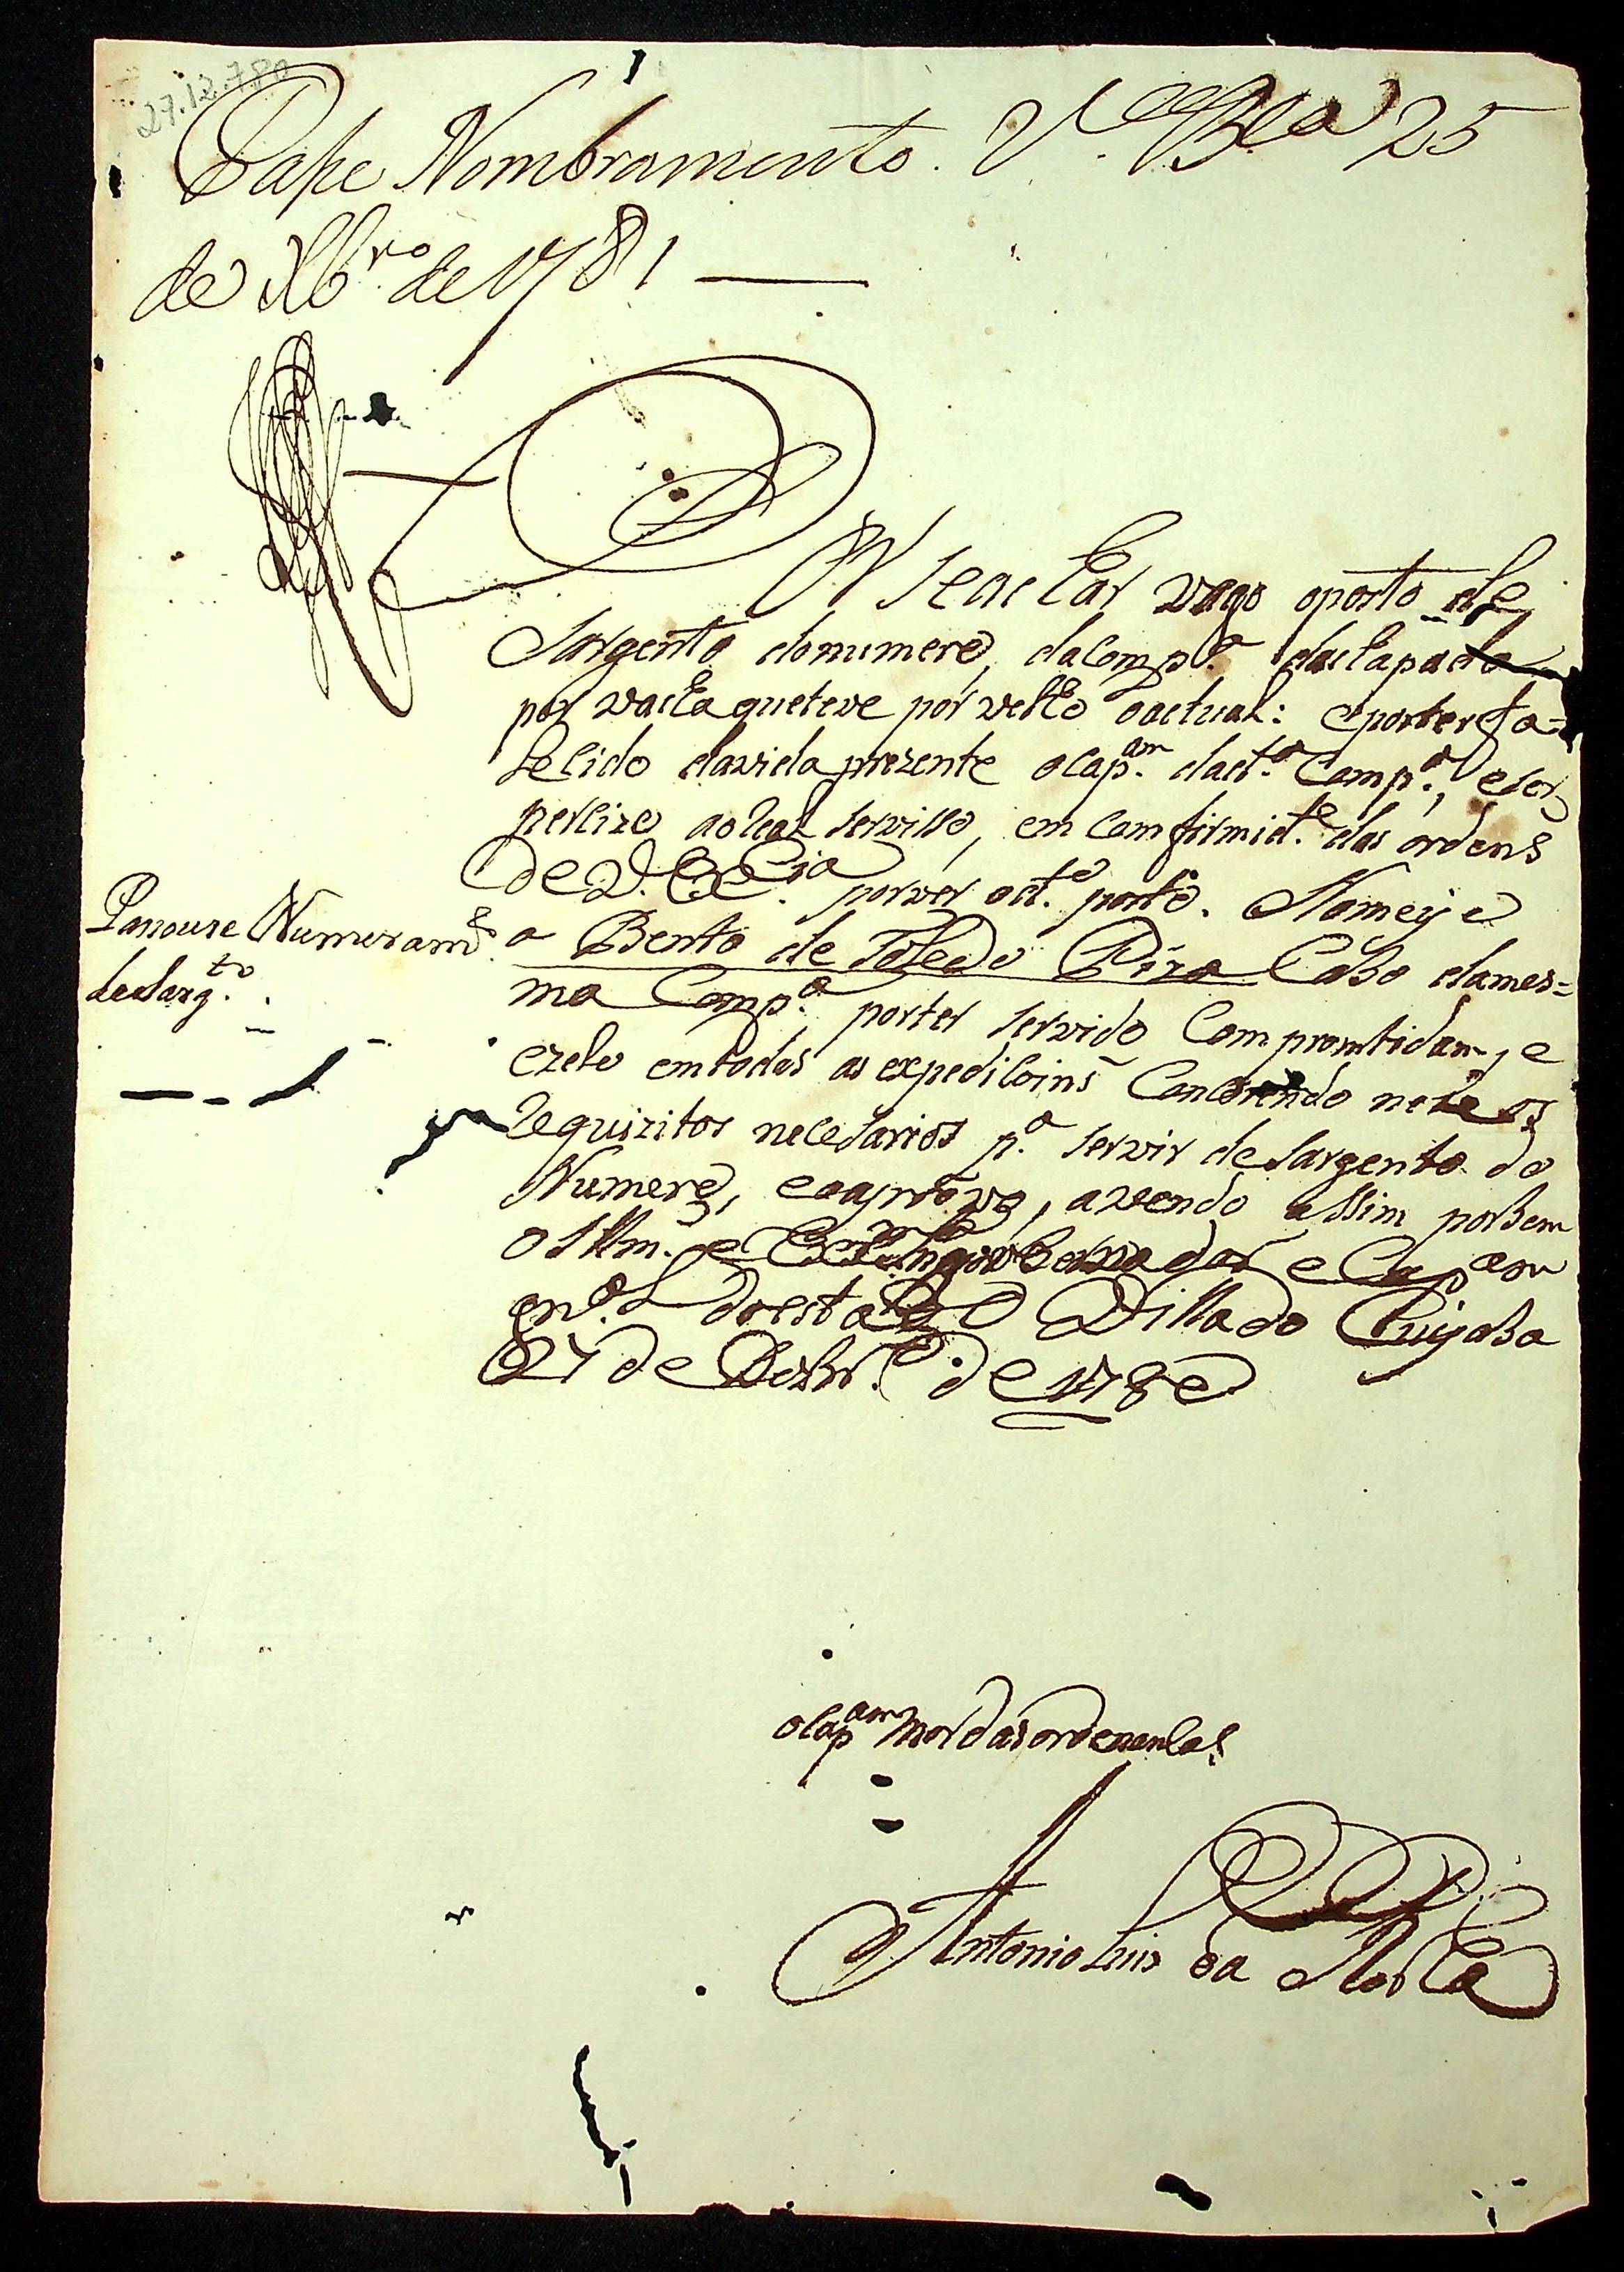 27.12.780
Pase Nombramento. V.ª Bla 25
de Xbro de 1781
P
Seachar vago oposto de
Sargento donumero, dacomp.ª
por vacla queteve por oactual: eporter fa=
lecido davida prezente ocap.am dad.ta Comp.ª, eser
percizo aoReal serviso, em comfirmid.e das ordens
De V. Ex.cia porver od.to posto. Nomeye
a Bento de Toledo Piza Cabo dames=
ma Comp.ª porter servido Com promtidam, e
ezelo emtodas as expedicoins Concorendo nele os
Requizitos necesarios p.ª servir de Sargento do
Numero, eoaprovo, avendo assim porbem
o Illm.o e Exm.o Sn.or Governador e Cap.am
gn.al Villa do Cuyaba
27 de Dezbr.o de 1780
Pasouse Numeram.to
deSarg.to
ocap.am mor das ordenancas
Antonio Luis da Rocha